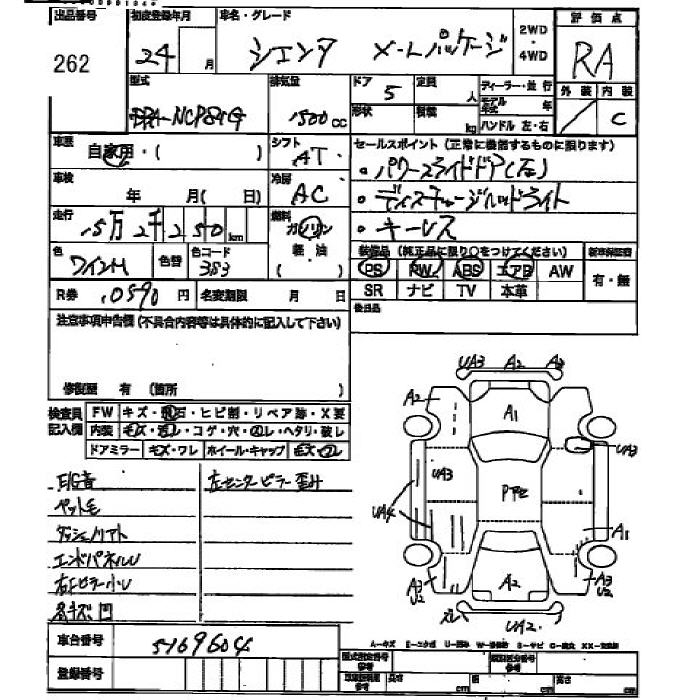 出品番号 初度登録年月 車名・グレード 2WD・4WD 評価点
262 24 月 シエンタ X-Lパッケージ RA
型式 排気量 ドア 定員 ディーラー・並行 外装 内装
DBA-NCP81G 1500cc 5 人 モデル年式 年 C
形状 積載 kg ハンドル 左・右
車歴 自家用・( ) シフト AT セールスポイント(正常に機能するものに限ります)
・パワースライドドア(左)
車検 年 月( 日) 冷房 AC ・ディスチャージヘッドライト
走行 15万2千250km 燃料 ガソリン・軽・油( ) ・キーレス
色 ワインM 色替 色コード 3S3 装備品(純正品に限り○をつけてください) 新車保証書
PS PW ABS エアB AW 有・無
R券 10590円 名変期限 月 日 SR ナビ TV 本革
注意事項申告欄(不具合内容等は具体的に記入して下さい) 後日品
修復歴 有 (箇所 )
検査員記入欄 FW キズ・飛石・ヒビ割・リペア跡・X要
内装 キズ・汚レ・コゲ・穴・スレ・ヘタリ・破レ
ドアミラー キズ・ワレ ホイール・キャップ キズ・ワレ
左センターピラー歪み
ペット毛
エンドパネルU
右ピラー小U
UA3 A2 A3
A2 A1
UA3 UA3
UA4 A1
A3 U2 A2 A3 U2
UA2
車台番号 5169604
登録番号
A-キズ E-エクボ U-凹み W-補修跡 S-サビ C-腐食 XX-交換済
型式指定番号 参考 類別区分番号 参考
長さ cm 巾 cm 高さ cm